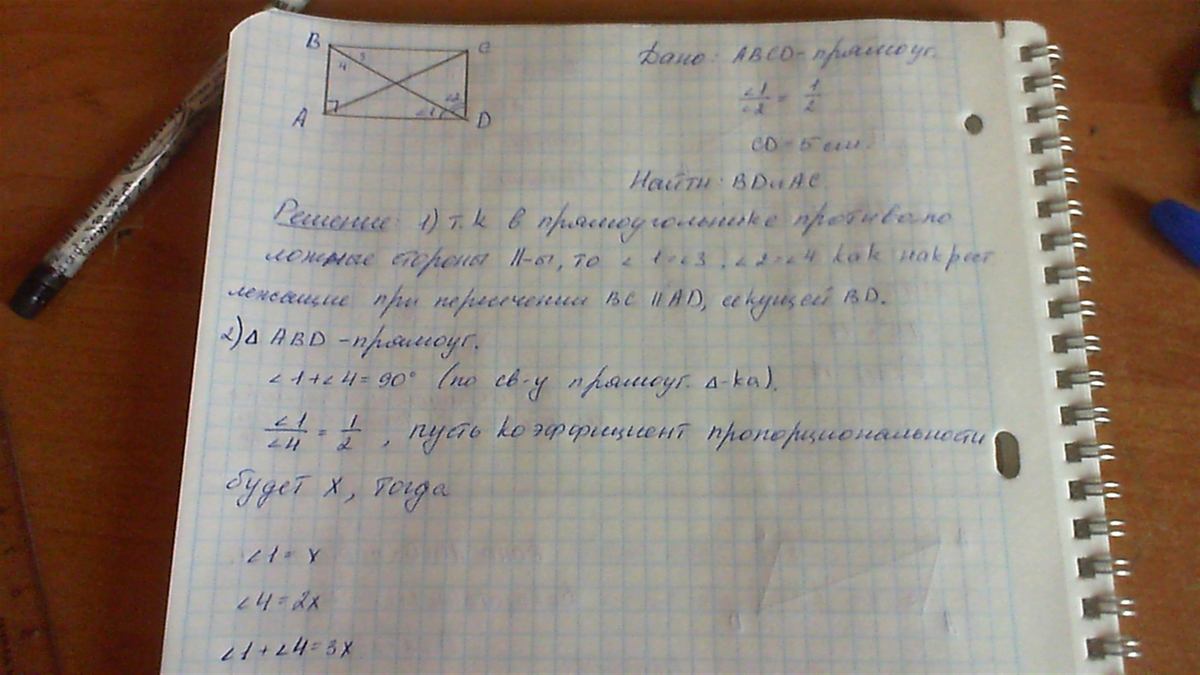 B
C
4
3
A
∠1
∠2
D
Дано: ABCD - прямоуг.
∠1/∠2 = 1/2
CD = 5 см.
Найти: BD и AC.
Решение: 1) т.к в прямоугольнике противопо
ложные стороны ||-ы, то ∠1=∠3, ∠2=∠4 как накрест
лежащие при пересечении BC || AD, секущей BD.
2) Δ ABD - прямоуг.
∠1+∠4=90° (по св-у прямоуг. Δ-ка).
∠1/∠4 = 1/2, пусть коэффициент пропорциональности
будет x, тогда
∠1 = x
∠4 = 2x
∠1+∠4=3x